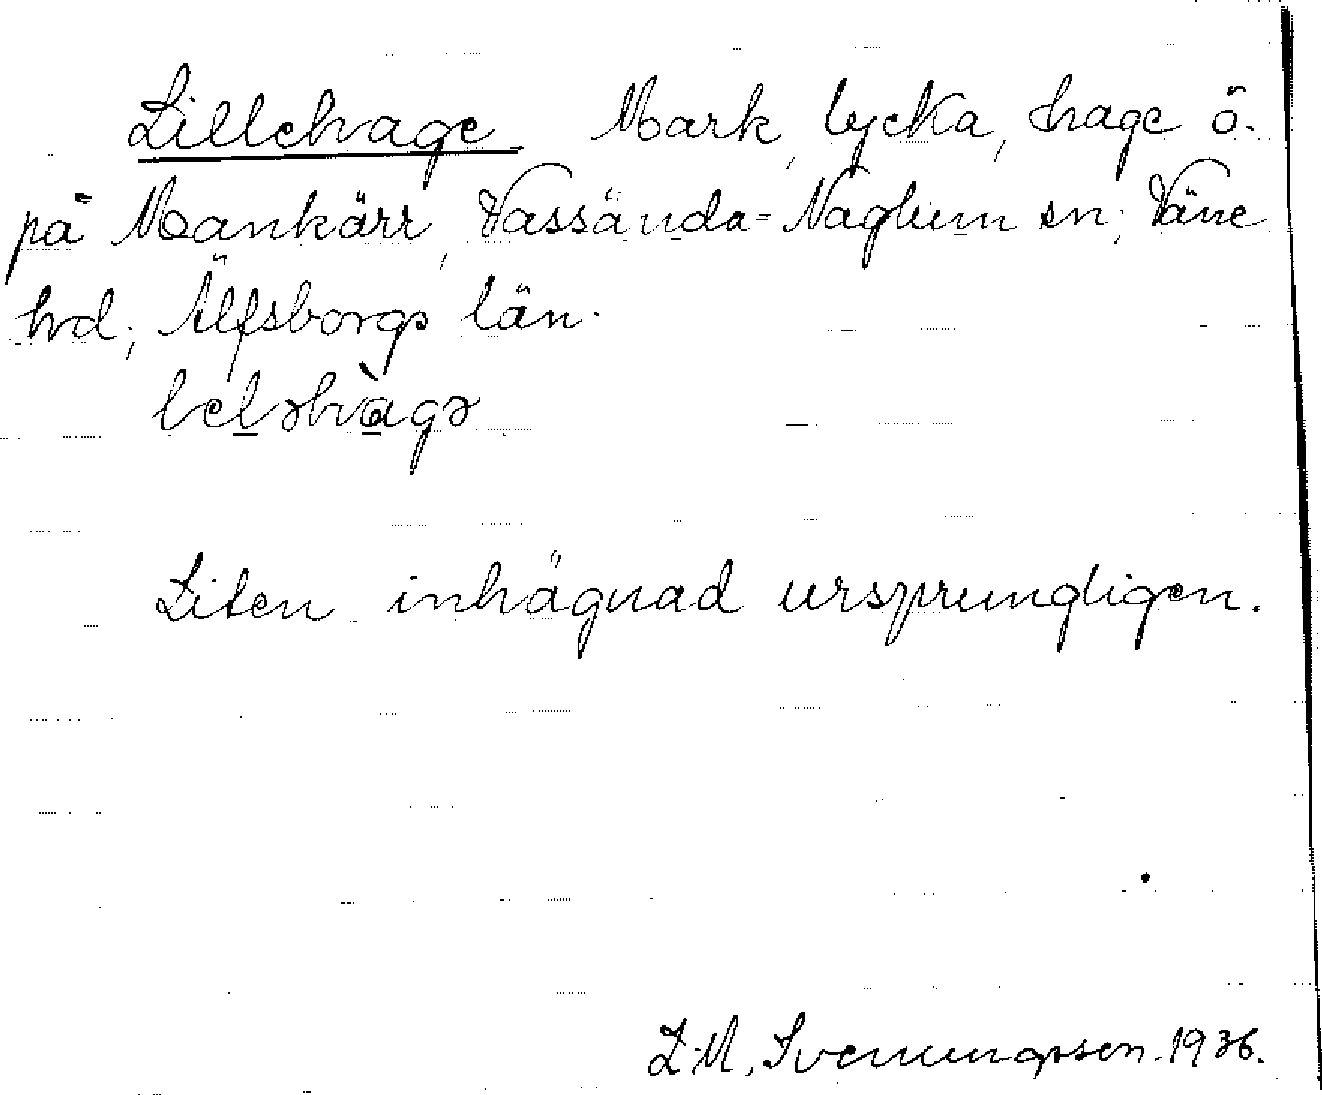 Lillehage Mark, lycka, hage ö.
på Mankärr, Vassända-Naglum sn, Väne
hd, Älfsborgs län.
leləhàgə
Liten inhägnad ursprungligen.
L.M. Svenungsson 1936.